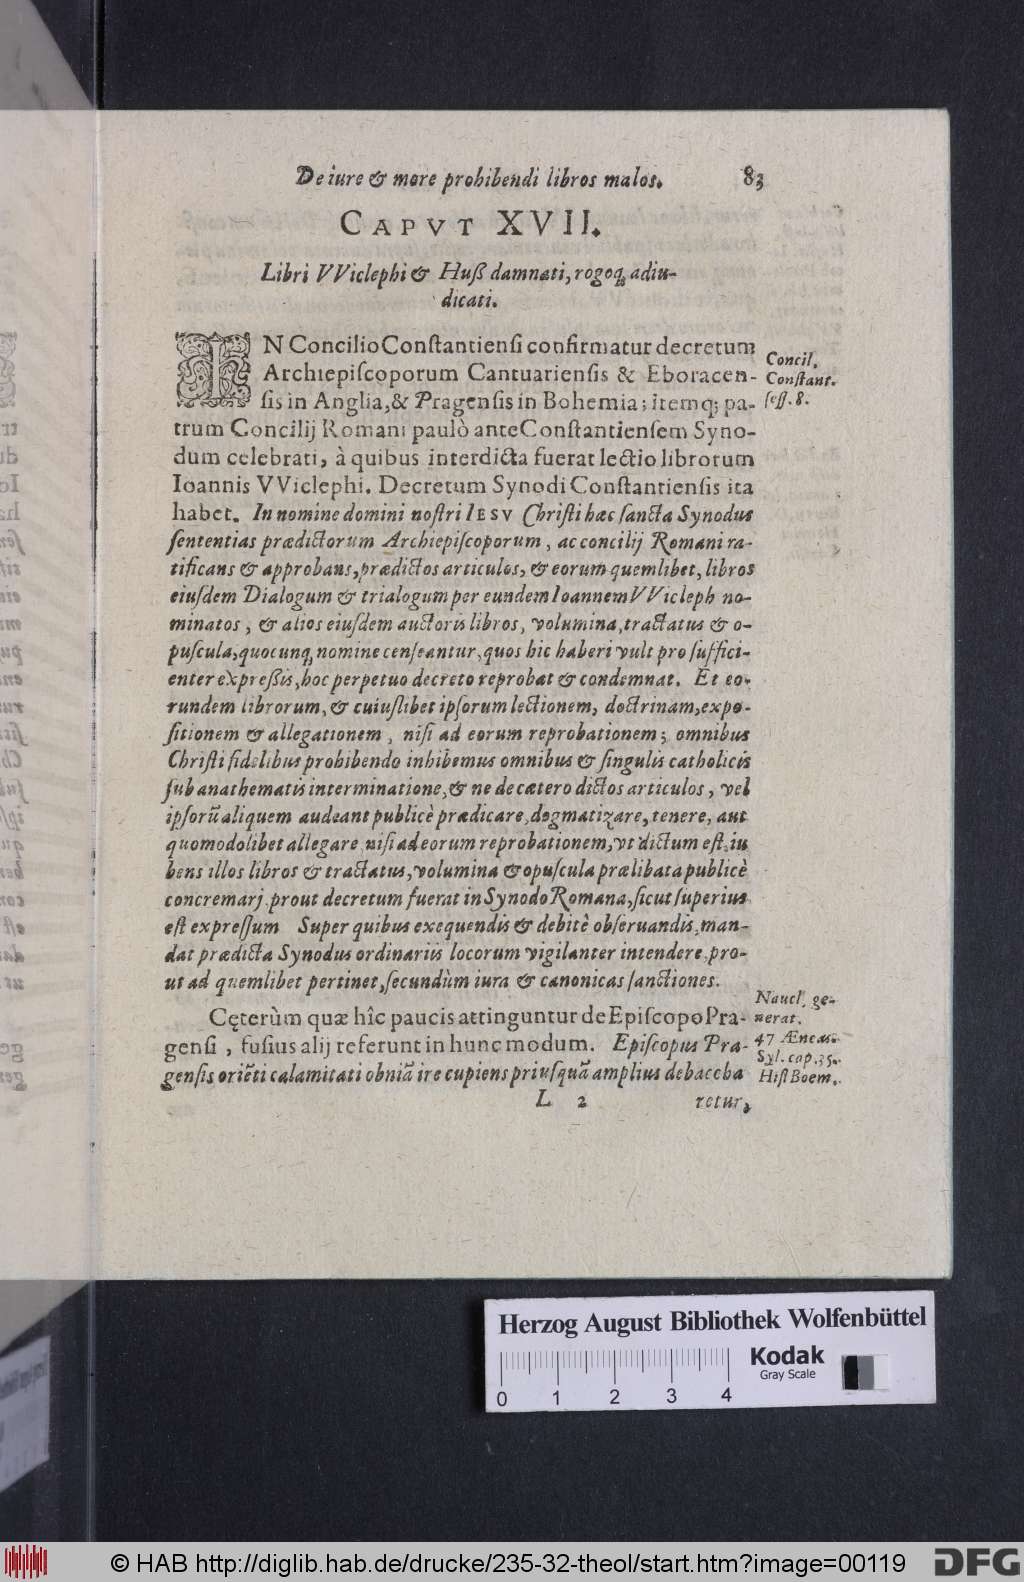 De iure & more prohibendi libros malos. 83
CAPVT XVII.
Libri VViclephi & Huß damnati, rogoq; adiu-
dicati.
IN Concilio Constantiensi confirmatur decretum
Archiepiſcoporum Cantuarienſis & Eboracen-
ſis in Anglia, & Pragenſis in Bohemia; itemq; pa-
trum Concilij Romani paulò ante Conſtantienſem Syno-
dum celebrati, à quibus interdicta fuerat lectio librorum
Ioannis VViclephi. Decretum Synodi Conſtantienſis ita
habet. In nomine domini noſtri IESV Chriſti hæc ſancta Synodus
ſententias prædictorum Archiepiſcoporum, ac concilij Romani ra-
tificans & approbans, prædictos articulos, & eorum quemlibet, libros
eiuſdem Dialogum & trialogum per eundem Ioannem VVicleph no-
minatos, & alios eiuſdem auctoris libros, volumina, tractatus & o-
puſcula, quocunq; nomine cenſeantur, quos hic haberi vult pro ſuffici-
enter expreßis, hoc perpetuo decreto reprobat & condemnat. Et eo-
rundem librorum, & cuiuſlibet ipſorum lectionem, doctrinam, expo-
ſitionem & allegationem, niſi ad eorum reprobationem; omnibus
Chriſti fidelibus prohibendo inhibemus omnibus & ſingulis catholicis
ſub anathematis interminatione, & ne de cætero dictos articulos, vel
ipſorũ aliquem audeant publicè prædicare, dogmatizare, tenere, aut
quomodolibet allegare niſi ad eorum reprobationem, vt dictum eſt, iu
bens illos libros & tractatus, volumina & opuſcula prælibata publicè
concremari, prout decretum fuerat in Synodo Romana, ſicut ſuperius
eſt expreſſum Super quibus exequendis & debitè obſeruandis, man-
dat prædicta Synodus ordinariis locorum vigilanter intendere, pro-
ut ad quemlibet pertinet, ſecundùm iura & canonicas ſanctiones.
Cęterùm quæ hîc paucis attinguntur de Epiſcopo Pra-
genſi, fuſius alij referunt in hunc modum. Epiſcopus Pra-
genſis oriẽti calamitati obuiã ire cupiens priuſquã amplius debaccha
L 2 retur,
Concil.
Conſtant.
ſeſſ. 8.
Naucl. ge-
nerat.
47 Æneas.
Syl. cap. 35.
Hiſt Boem.
Herzog August Bibliothek Wolfenbüttel
Kodak
Gray Scale
0 1 2 3 4
© HAB http://diglib.hab.de/drucke/235-32-theol/start.htm?image=00119
DFG